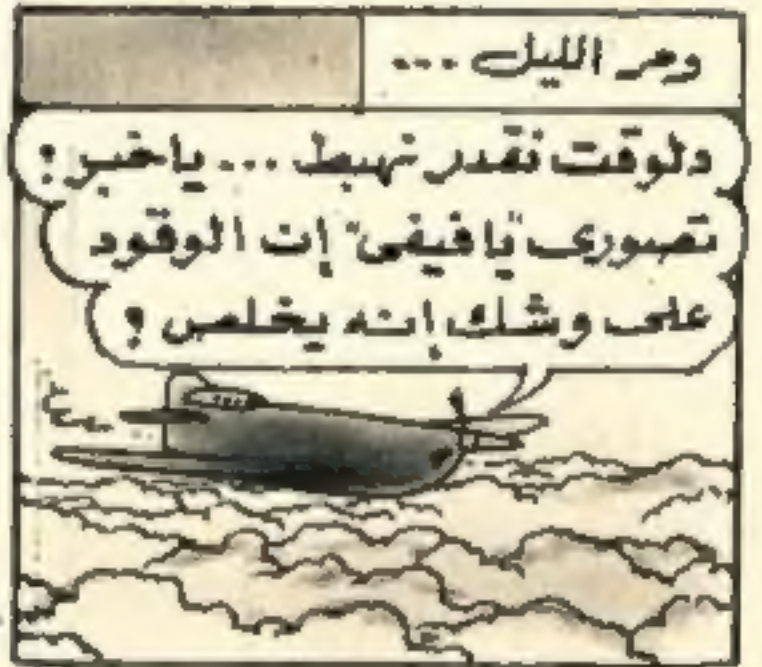 ومر الليل ...
دلوقت نقدر نهبط ... ياخبر !
تصورى "يافيفى" إن الوقود
على وشك إنه يخلص !